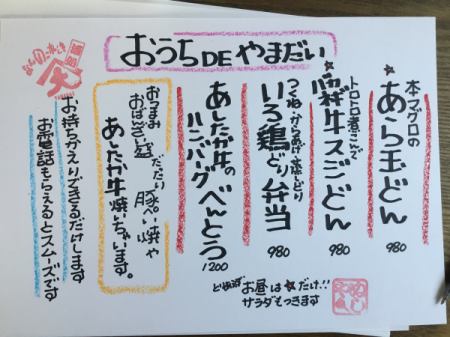 おうちDEやまだい
本マグロの
★あら玉どん
980
トロトロ煮こんで
★牛スジどん
980
つくね・からあげ・蒸しどり
いろ鶏どり弁当
980
あしたか牛の
ハンバーグべんとう
1200
おつまみ
おばんざい
だったり
豚ぺい焼や
あしたか牛焼いちゃいます。
お持ちかえりできるだけします
お電話もらえるとスムーズです
お昼は★だけ!!
サラダもつきます